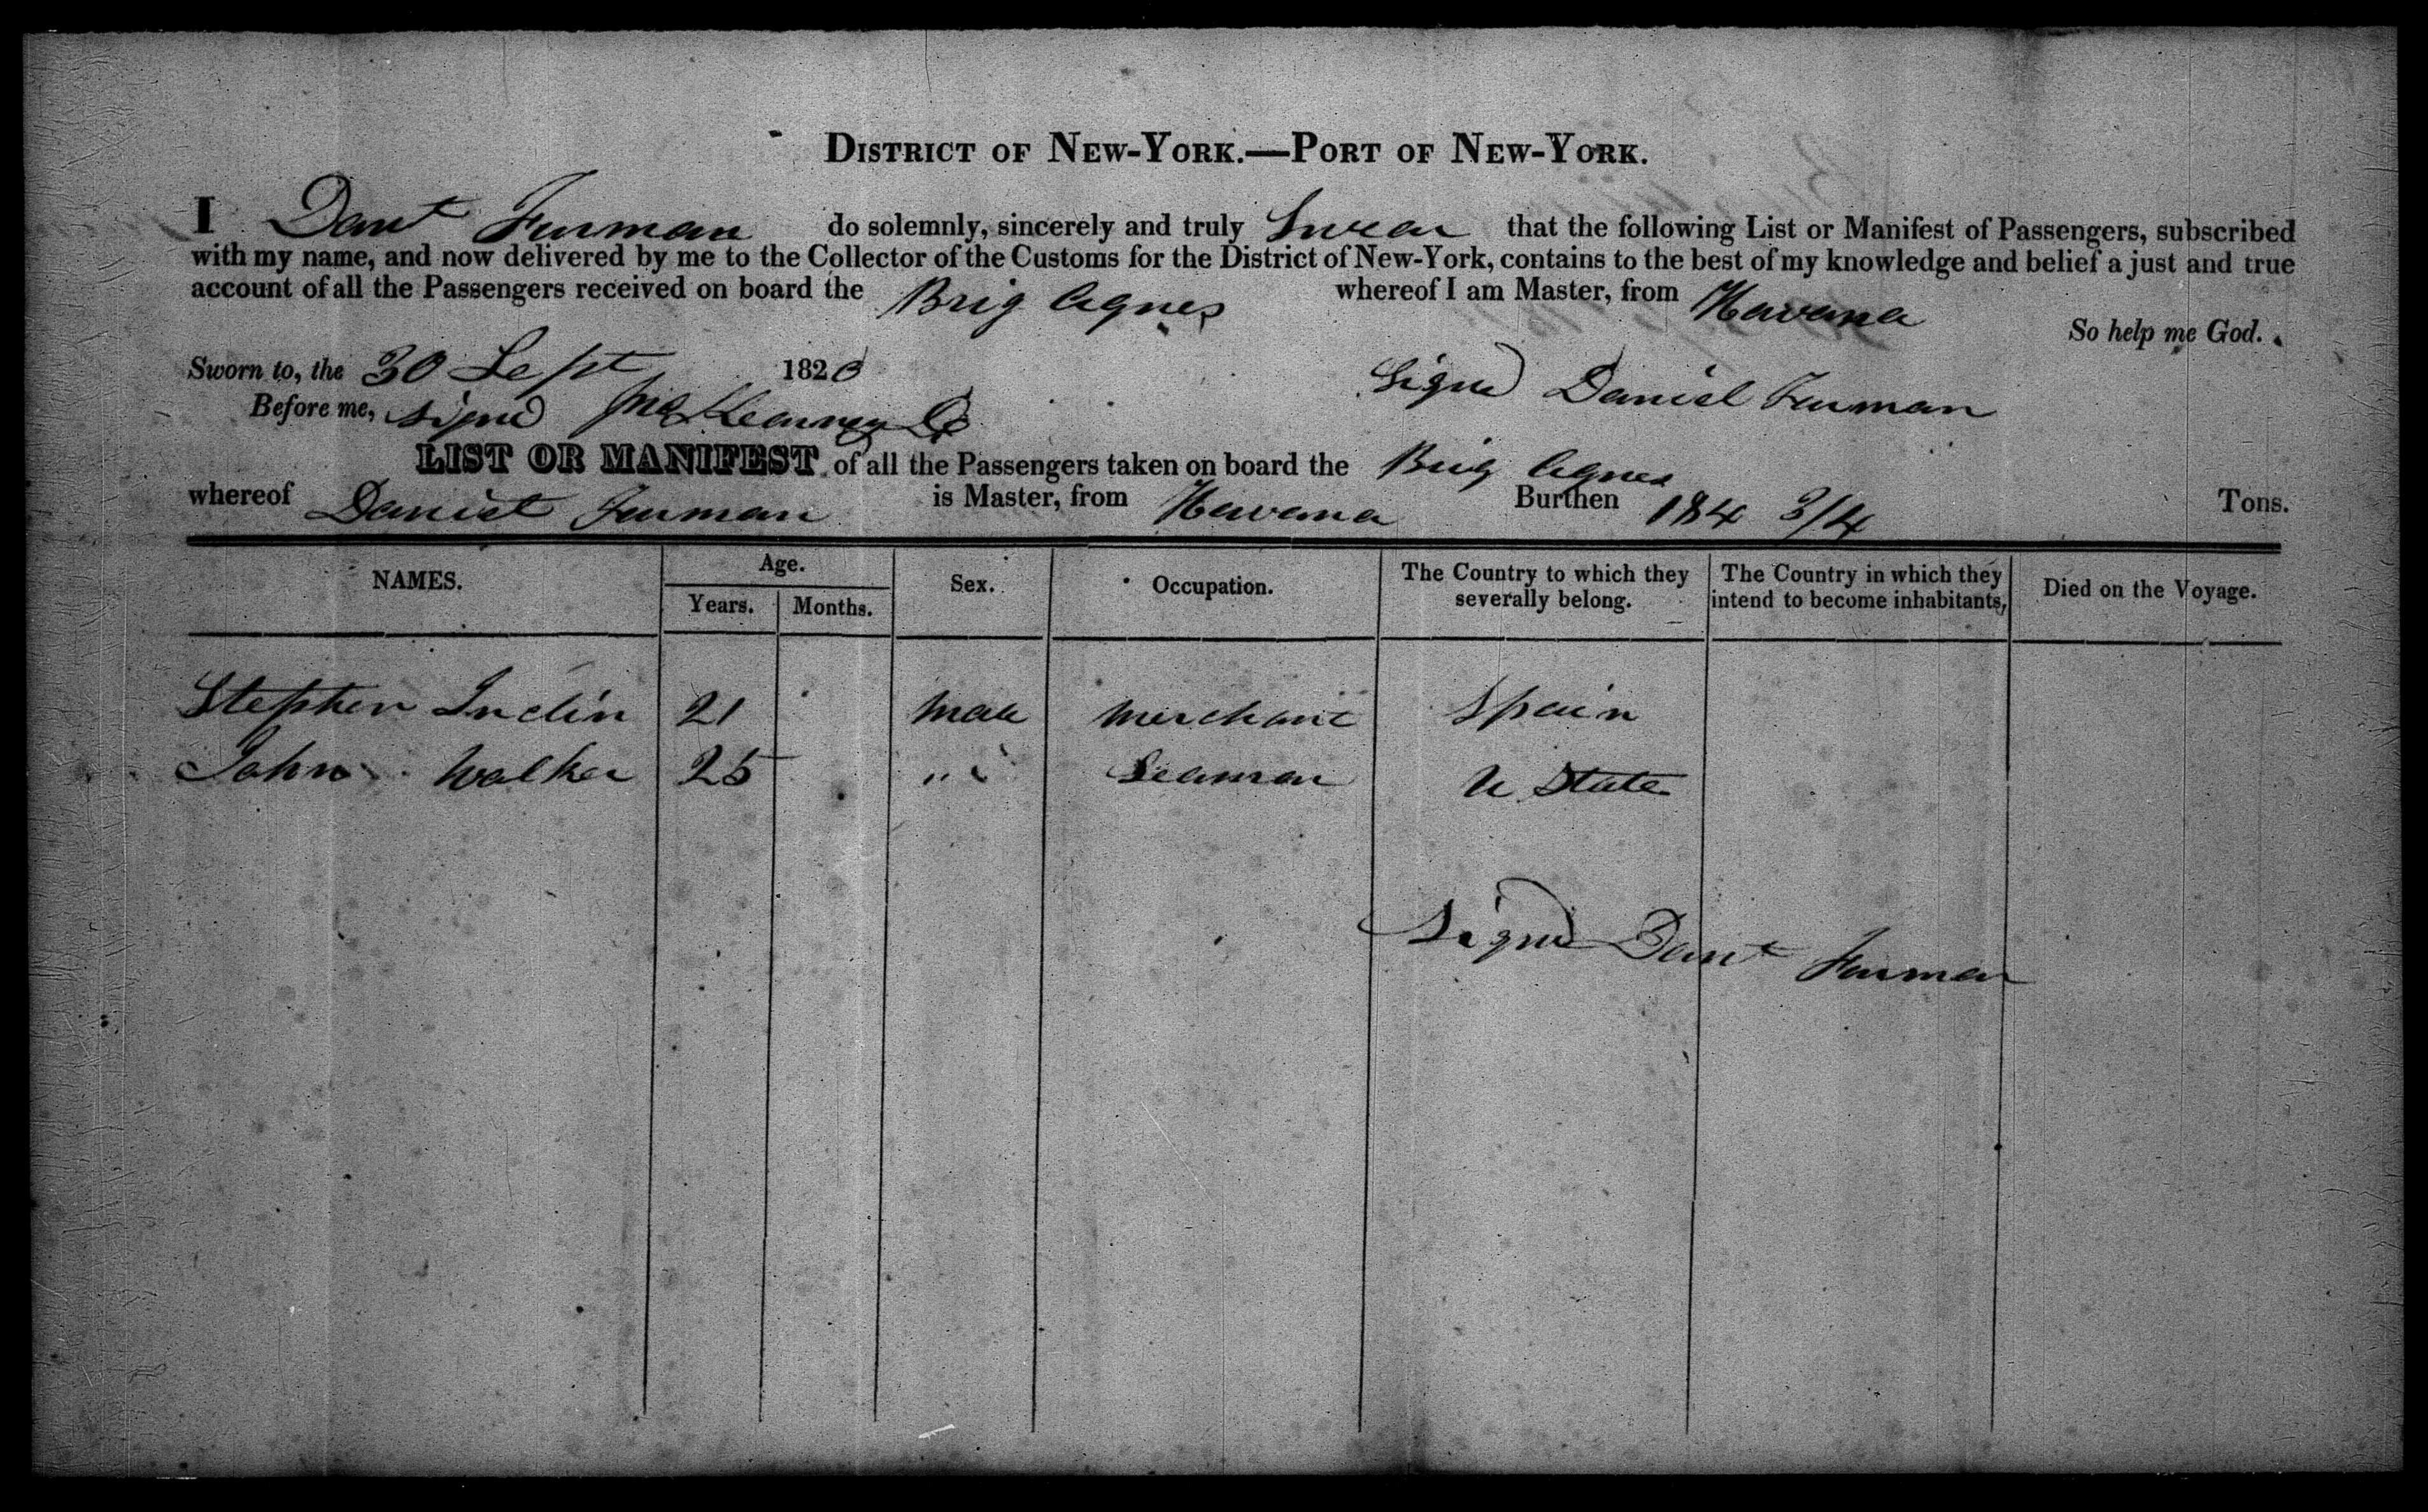 DISTRICT OF NEW-YORK.—PORT OF NEW-YORK.
I Danl Furman do solemnly, sincerely and truly Swear that the following List or Manifest of Passengers, subscribed
with my name, and now delivered by me to the Collector of the Customs for the District of New-York, contains to the best of my knowledge and belief a just and true
account of all the Passengers received on board the Brig Agnes whereof I am Master, from Havana
So help me God.
Sworn to, the 30 Sept 1820 Signd Daniel Furman
Before me, signd
LIST OR MANIFEST of all the Passengers taken on board the Brig Agnes
whereof Daniel Furman is Master, from Havana Burthen 184 3/4 Tons.
NAMES. Age. Years. Months. Sex. Occupation. The Country to which they severally belong. The Country in which they intend to become inhabitants, Died on the Voyage.
Stephen 21 Male Merchant Spain
John Walker 25 " Seaman U State
Signd Danl Furman